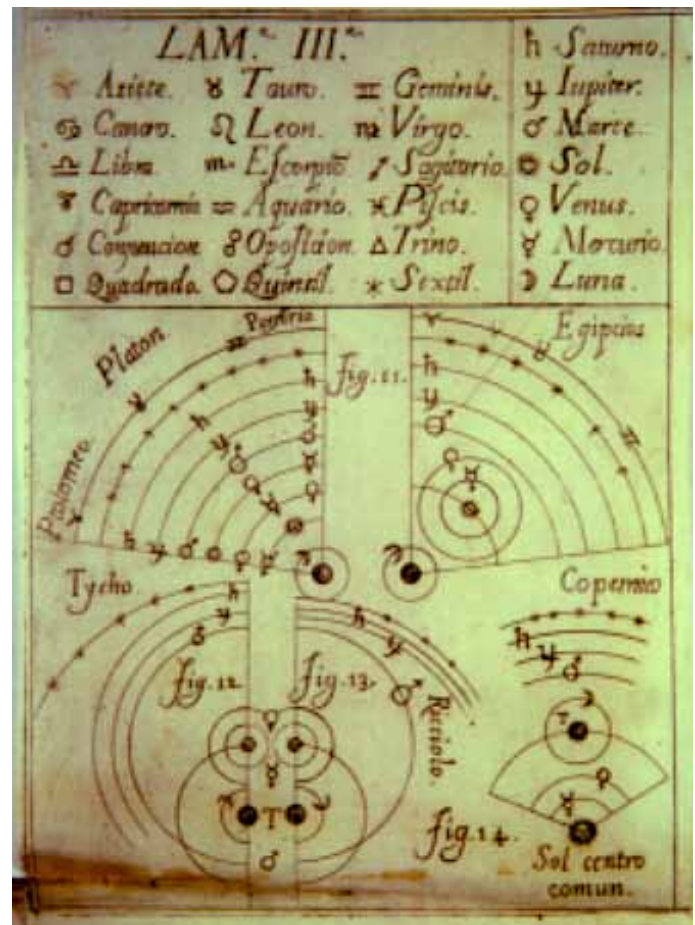 LAM.ª III.ª
♈ Ariete. ♉ Tauro. ♊ Geminis.
♋ Cancro. ♌ Leon. ♍ Virgo.
♎ Libra ♏ Escorpiõ ♐ Sagitario.
♑ Capricornio ♒ Aquario. ♓ Piscis.
☌ Conjuncion ☍ Oposicion. △ Trino.
□ Quadrado ⬠ Quintil. ⚹ Sextil.
♄ Saturno.
♃ Iupiter.
♂ Marte.
☉ Sol.
♀ Venus.
☿ Mercurio.
☽ Luna.
Ptolomeo.
Platon.
Porfirio
fig. 11.
Egipcios
Tycho.
fig. 12
fig. 13.
Ricciolo.
T
Copernico
T
fig. 14.
Sol centro
comun.